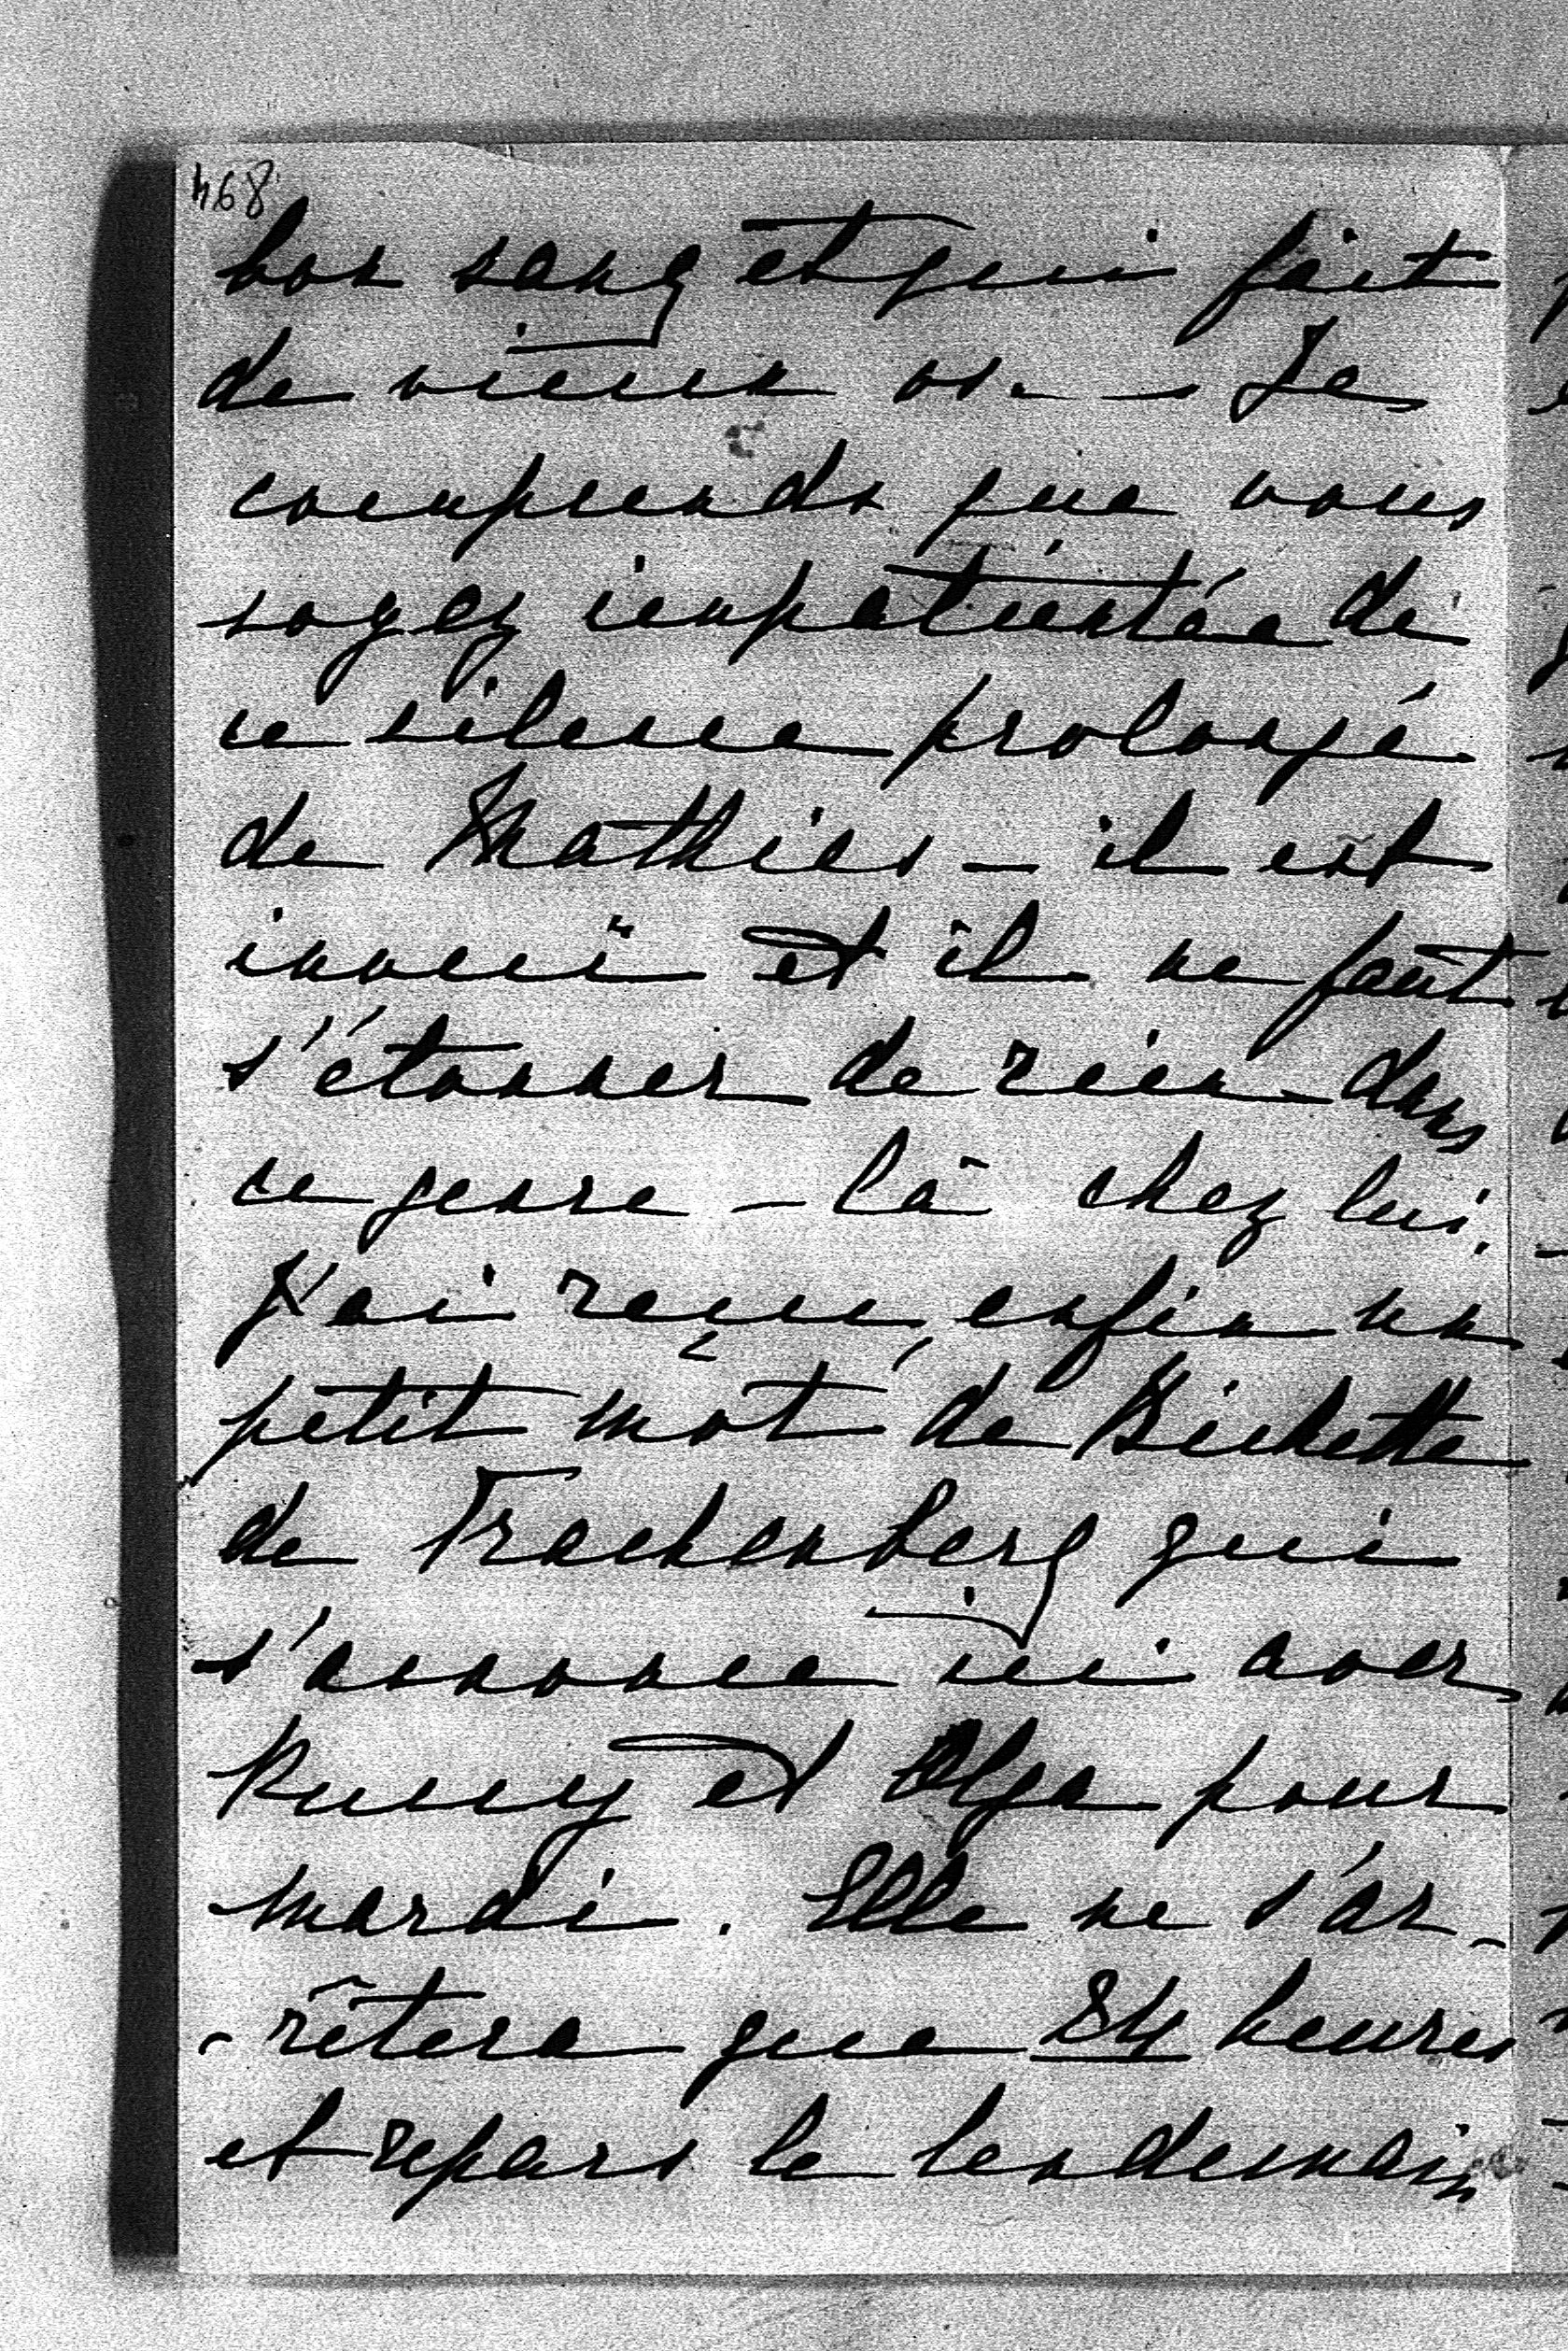 468
bon sang et qui fait
de vieux os. — Je
comprends que vous
soyez impatientée de
ce silence prolongé
de Mathias — il est
inouï et il ne faut
s'étonner de rien dans
ce genre-là chez lui.
J'ai reçu enfin un
petit mot de Bichette
de Trachenberg qui
s'annonce ici avec
et Olga pour
mardi. Elle ne s'ar-
-rêtera que 24 heures
et repars le lendemain